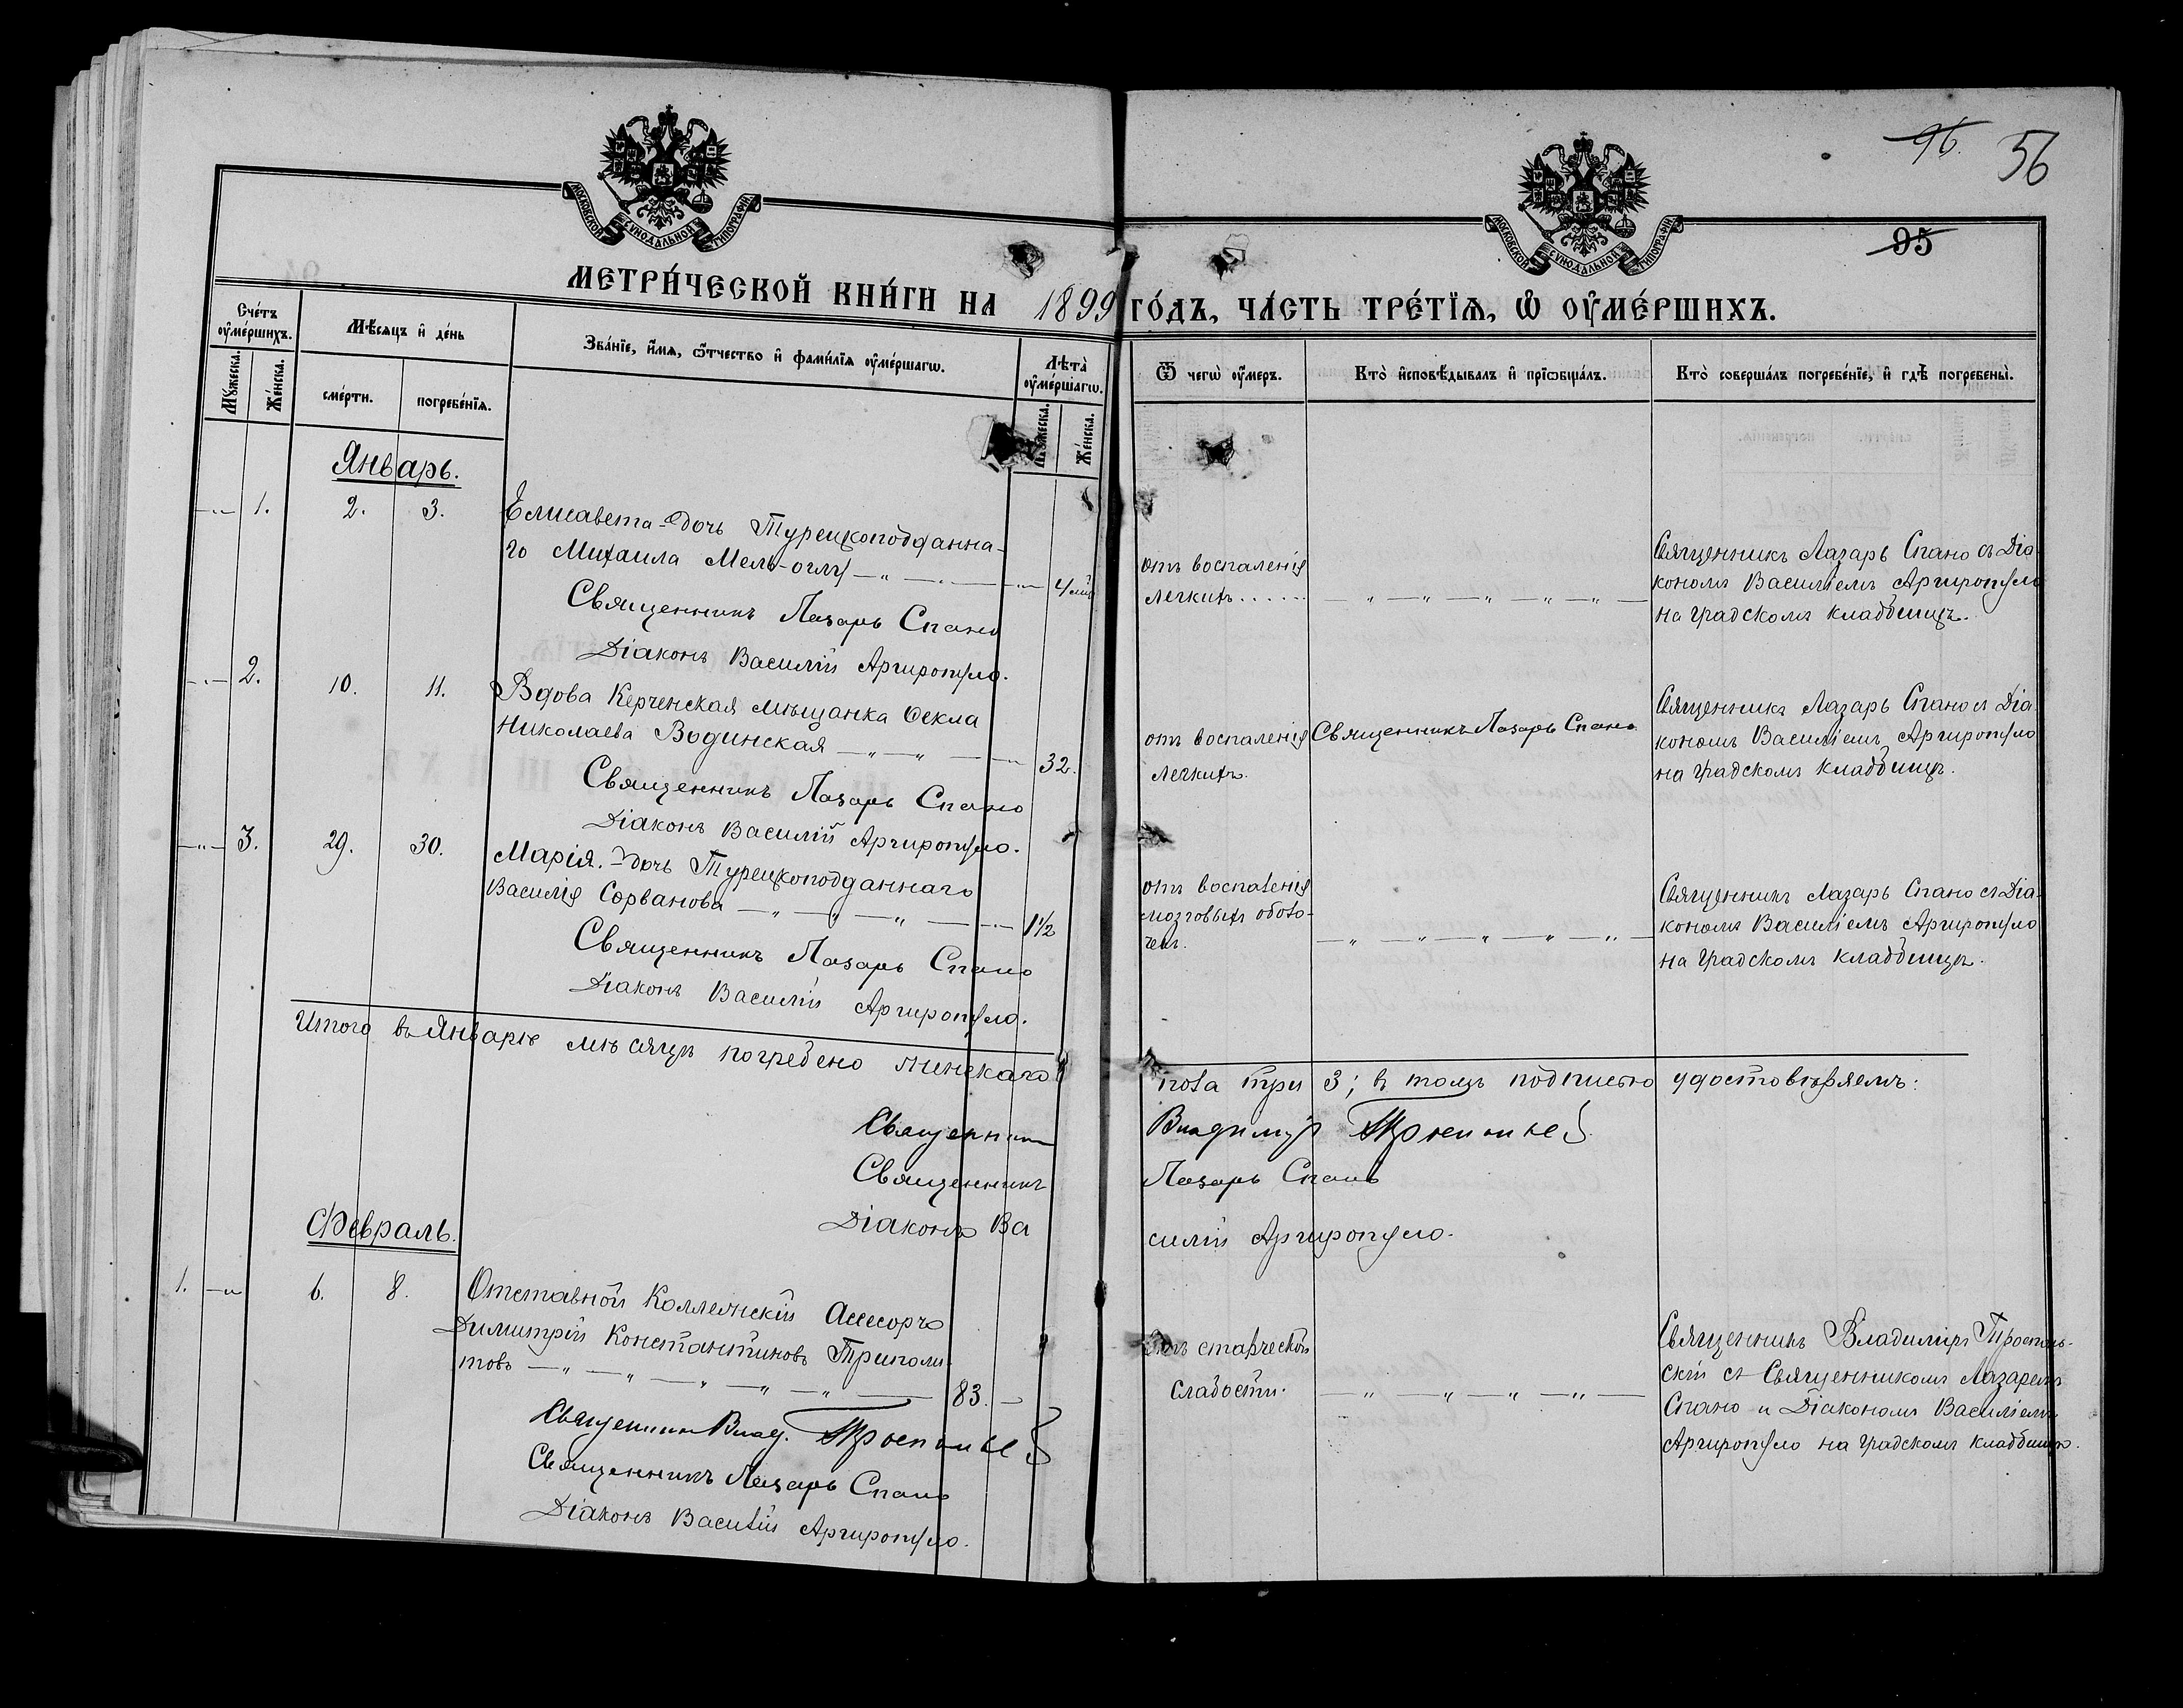 96. 56
МОСКОВСКОЙ СѴНОДАЛЬНОЙ ТИПОГРАФІИ
МОСКОВСКОЙ СѴНОДАЛЬНОЙ ТИПОГРАФІИ
95
МЕТРИ́ЧЕСКОЙ КНИ́ГИ НА 1899 ГО́ДЪ, ЧА́СТЬ ТРЕ́ТЇѦ, Ѡ҆ ОУ҆МЕ́РШИХЪ.
Сче́тъ оу҆ме́ршихъ.
Мѣ́сяцъ и҆ де́нь
Зва́нїе, и҆́мѧ, ѻ҆́тчество и҆ фами́лїѧ оу҆ме́ршагѡ.
Лѣ́та оу҆ме́ршагѡ.
Ѿ чегѡ̀ оу҆́меръ.
Кто̀ и҆сповѣ́дывалъ и҆ прїѡбща́лъ.
Кто̀ соверша́лъ погребе́нїе, и҆ гдѣ̀ погребены̀.
Мꙋ́жеска. Же́нска. сме́рти. погребе́нїѧ. Мꙋ́жеска. Же́нска.
Январь.
—„— 1. 2. 3. Елисавета-дочь Турецкоподданна-
го Михаила Мель-оглу —„— 4 м.
Священникъ Лазарь Спано
Діаконъ Василій Аргиропуло.
отъ воспаленія
легкихъ......
—„—„—„—„—„—
Священникъ Лазарь Спано съ Діа-
кономъ Василіемъ Аргиропуло
на градскомъ кладбищѣ.
—„— 2. 10. 11. Вдова Керченская мѣщанка Фекла
Николаева Водинская —„—„— 32.
Священникъ Лазарь Спано
Діаконъ Василій Аргиропуло.
отъ воспаленія
легкихъ.
Священникъ Лазарь Спано
Священникъ Лазарь Спано съ Діа-
кономъ Василіемъ Аргиропуло
на градскомъ кладбищѣ.
—„— 3. 29. 30. Марія-дочь Турецкоподданнаго
Василія Сорванова —„—„—„— 1½
Священникъ Лазарь Спано
Діаконъ Василій Аргиропуло.
отъ воспаленія
мозговыхъ оболо-
чекъ.
—„—„—„—„—„—
Священникъ Лазарь Спано съ Діа-
кономъ Василіемъ Аргиропуло
на градскомъ кладбищѣ.
Итого въ Январѣ мѣсяцѣ погребено женскаго пола три 3; въ томъ подписью удостовѣряемъ:
Священник Владимір
Священникъ Лазарь Спано
Діаконъ Василій Аргиропуло.
Февраль.
1. —„ 6. 8. Отставной Коллежскій Ассесоръ
Димитрій Константиновъ Триполи-
товъ —„—„—„—„—„— 83. —
Священник Влад.
Священникъ Лазарь Спано
Діаконъ Василій Аргиропуло.
Отъ старческой
слабости.
—„—„—„—„—
Священникъ Владиміръ
скій съ Священникомъ Лазаремъ
Спано и Діакономъ Василіемъ
Аргиропуло на градскомъ кладбищѣ.